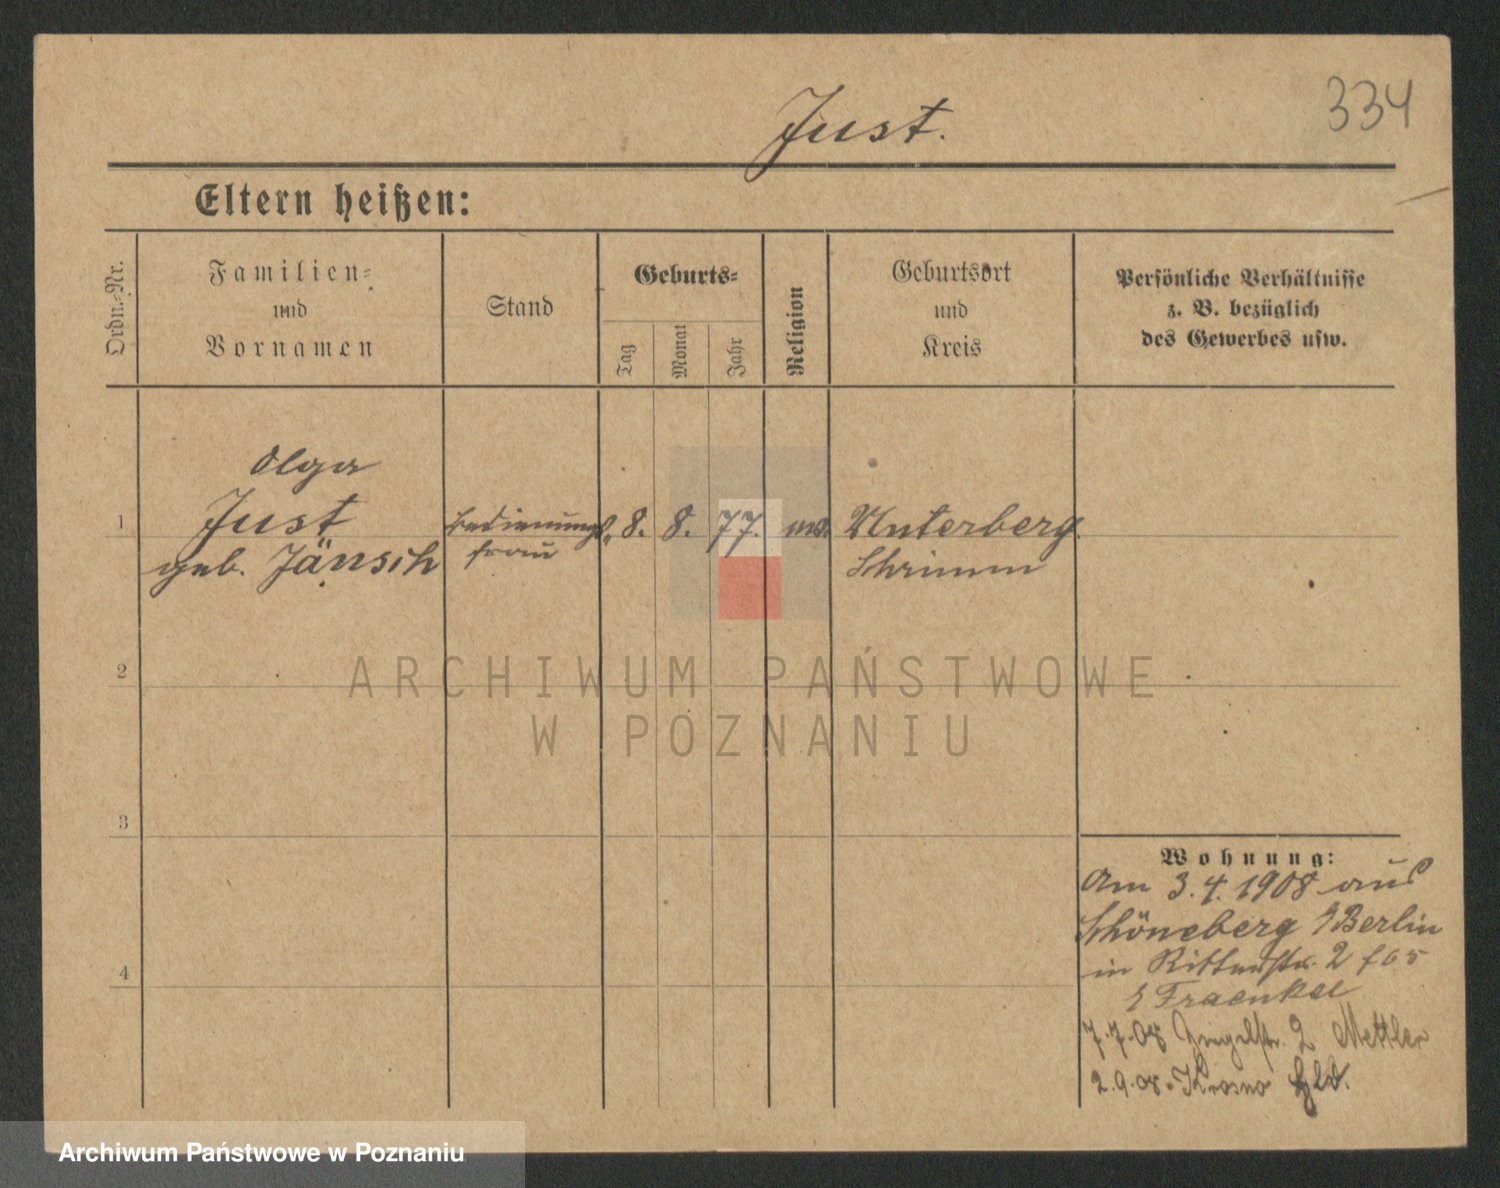 334
Just.
Eltern heißen:
Ordn.-Nr.
Familien-
und
Vornamen
Stand
Geburts-
Tag
Monat
Jahr
Religion
Geburtsort
und
Kreis
Persönliche Verhältnisse
z. B. bezüglich
des Gewerbes usw.
1
Olga
Just
geb. Jänsch
Bedienungs-
frau
8. 8. 77.
Unterberg
Schrimm
2
3
4
Wohnung:
Am 3.4.1908 aus
Schöneberg Berlin
in Ritterstr. 2
Fraenkel
7.7.08 2 Mettler
2.9.08. Krosno
ARCHIWUM PAŃSTWOWE
W POZNANIU
Archiwum Państwowe w Poznaniu